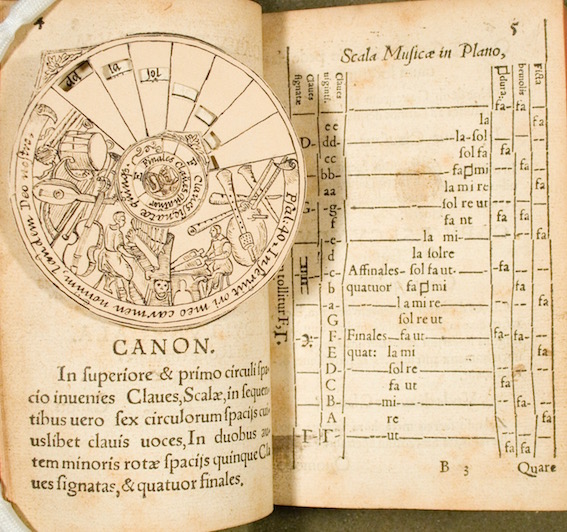 4
dd la sol
Psal. 40. Inmisit ori meo carmen nouum, laudem Deo nostro.
CANON.
In superiore & primo circuli spa-
cio inuenies Claues, Scalæ, in sequen-
tibus uero sex circulorum spacijs cu-
iuslibet clauis uoces, In duobus au-
tem minoris rotæ spacijs quinque Cla
ues signatas, & quatuor finales.
5
Scala Musicæ in Plano,
Claues signatæ
Claues uiginti.
♮dura.
bemolis
Ficta
ee la
D- dd- la-sol
cc sol fa
bb- fa♮mi
aa la mi re
g- sol re ut
f fa ut
e- la mi
d la solre
c Affinales- sol fa ut-
b quatuor fa♮mi
a- la mi re
G sol re ut
F- Finales- fa ut
E quat: la mi
D- sol re
C fa ut
B- mi
A re
Γ- Γ- ut
fa fa fa fa fa fa fa fa fa fa fa fa fa fa
tollitur F, Γ
B 3 Quare